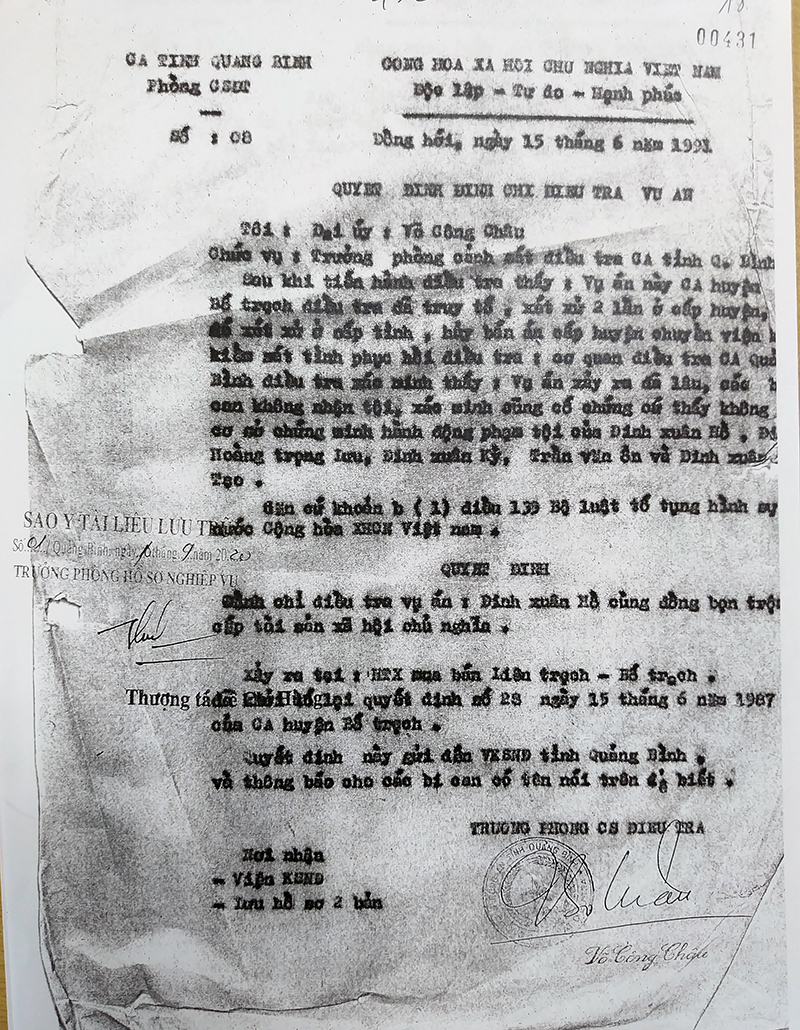 00431
CA TINH QUANG BINH
Phòng CSDT
Số : 08
CONG HOA XA HOI CHU NGHIA VIET NAM
Độc lập - Tự do - Hạnh phúc
Đồng hới, ngày 15 tháng 6 năm 1991
QUYET DINH DINH CHI DIEU TRA VU AN
Tôi : Đại úy : Võ Công Châu
Chức vụ : Trưởng phòng cảnh sát điều tra CA tỉnh Q. Bình
Sau khi tiến hành điều tra thấy : Vụ án này CA huyện
Bố trạch điều tra đã truy tố , xét xử 2 lần ở cấp huyện,
để xét xử ở cấp tỉnh , hủy bản án cấp huyện chuyển viện
kiểm sát tỉnh phục hồi điều tra : cơ quan điều tra CA
Bình điều tra xác minh thấy : Vụ án xảy ra đã lâu, các
can không nhận tội, xác minh cũng cố chứng cứ thấy không
cơ sở chứng minh hành động phạm tội của Đinh xuân Hồ ,
Hoàng trọng Lưu, Đinh xuân Kỷ, Trần văn Ổn và Đinh xuân
Tạo .
Căn cứ khoản b ( 1) điều 139 Bộ luật tố tụng hình sự
nước Cộng hòa XHCN Việt nam .
SAO Y TÀI LIỆU LƯU
Số 01 Quảng Bình, ngày tháng 9 năm 2020
TRƯỞNG PHÒNG HỒ SƠ NGHIỆP VỤ
QUYET DINH
chỉ điều tra vụ án : Đinh xuân Hồ cùng đồng bọn
cấp tài sản xã hội chủ nghĩa .
Xảy ra tại : HTX mua bán Liên trạch - Bố trạch .
Thượng tá
lại quyết định số 28 ngày 15 tháng 6 năm 1987
của CA huyện Bố trạch .
Quyết định này gửi đến VKSND tỉnh Quảng Bình .
và thông báo cho các bị can có tên nói trên để biết .
TRUONG PHONG CS DIEU TRA
Nơi nhận
- Viện KSND
- Lưu hồ sơ 2 bản
Võ Công Châu